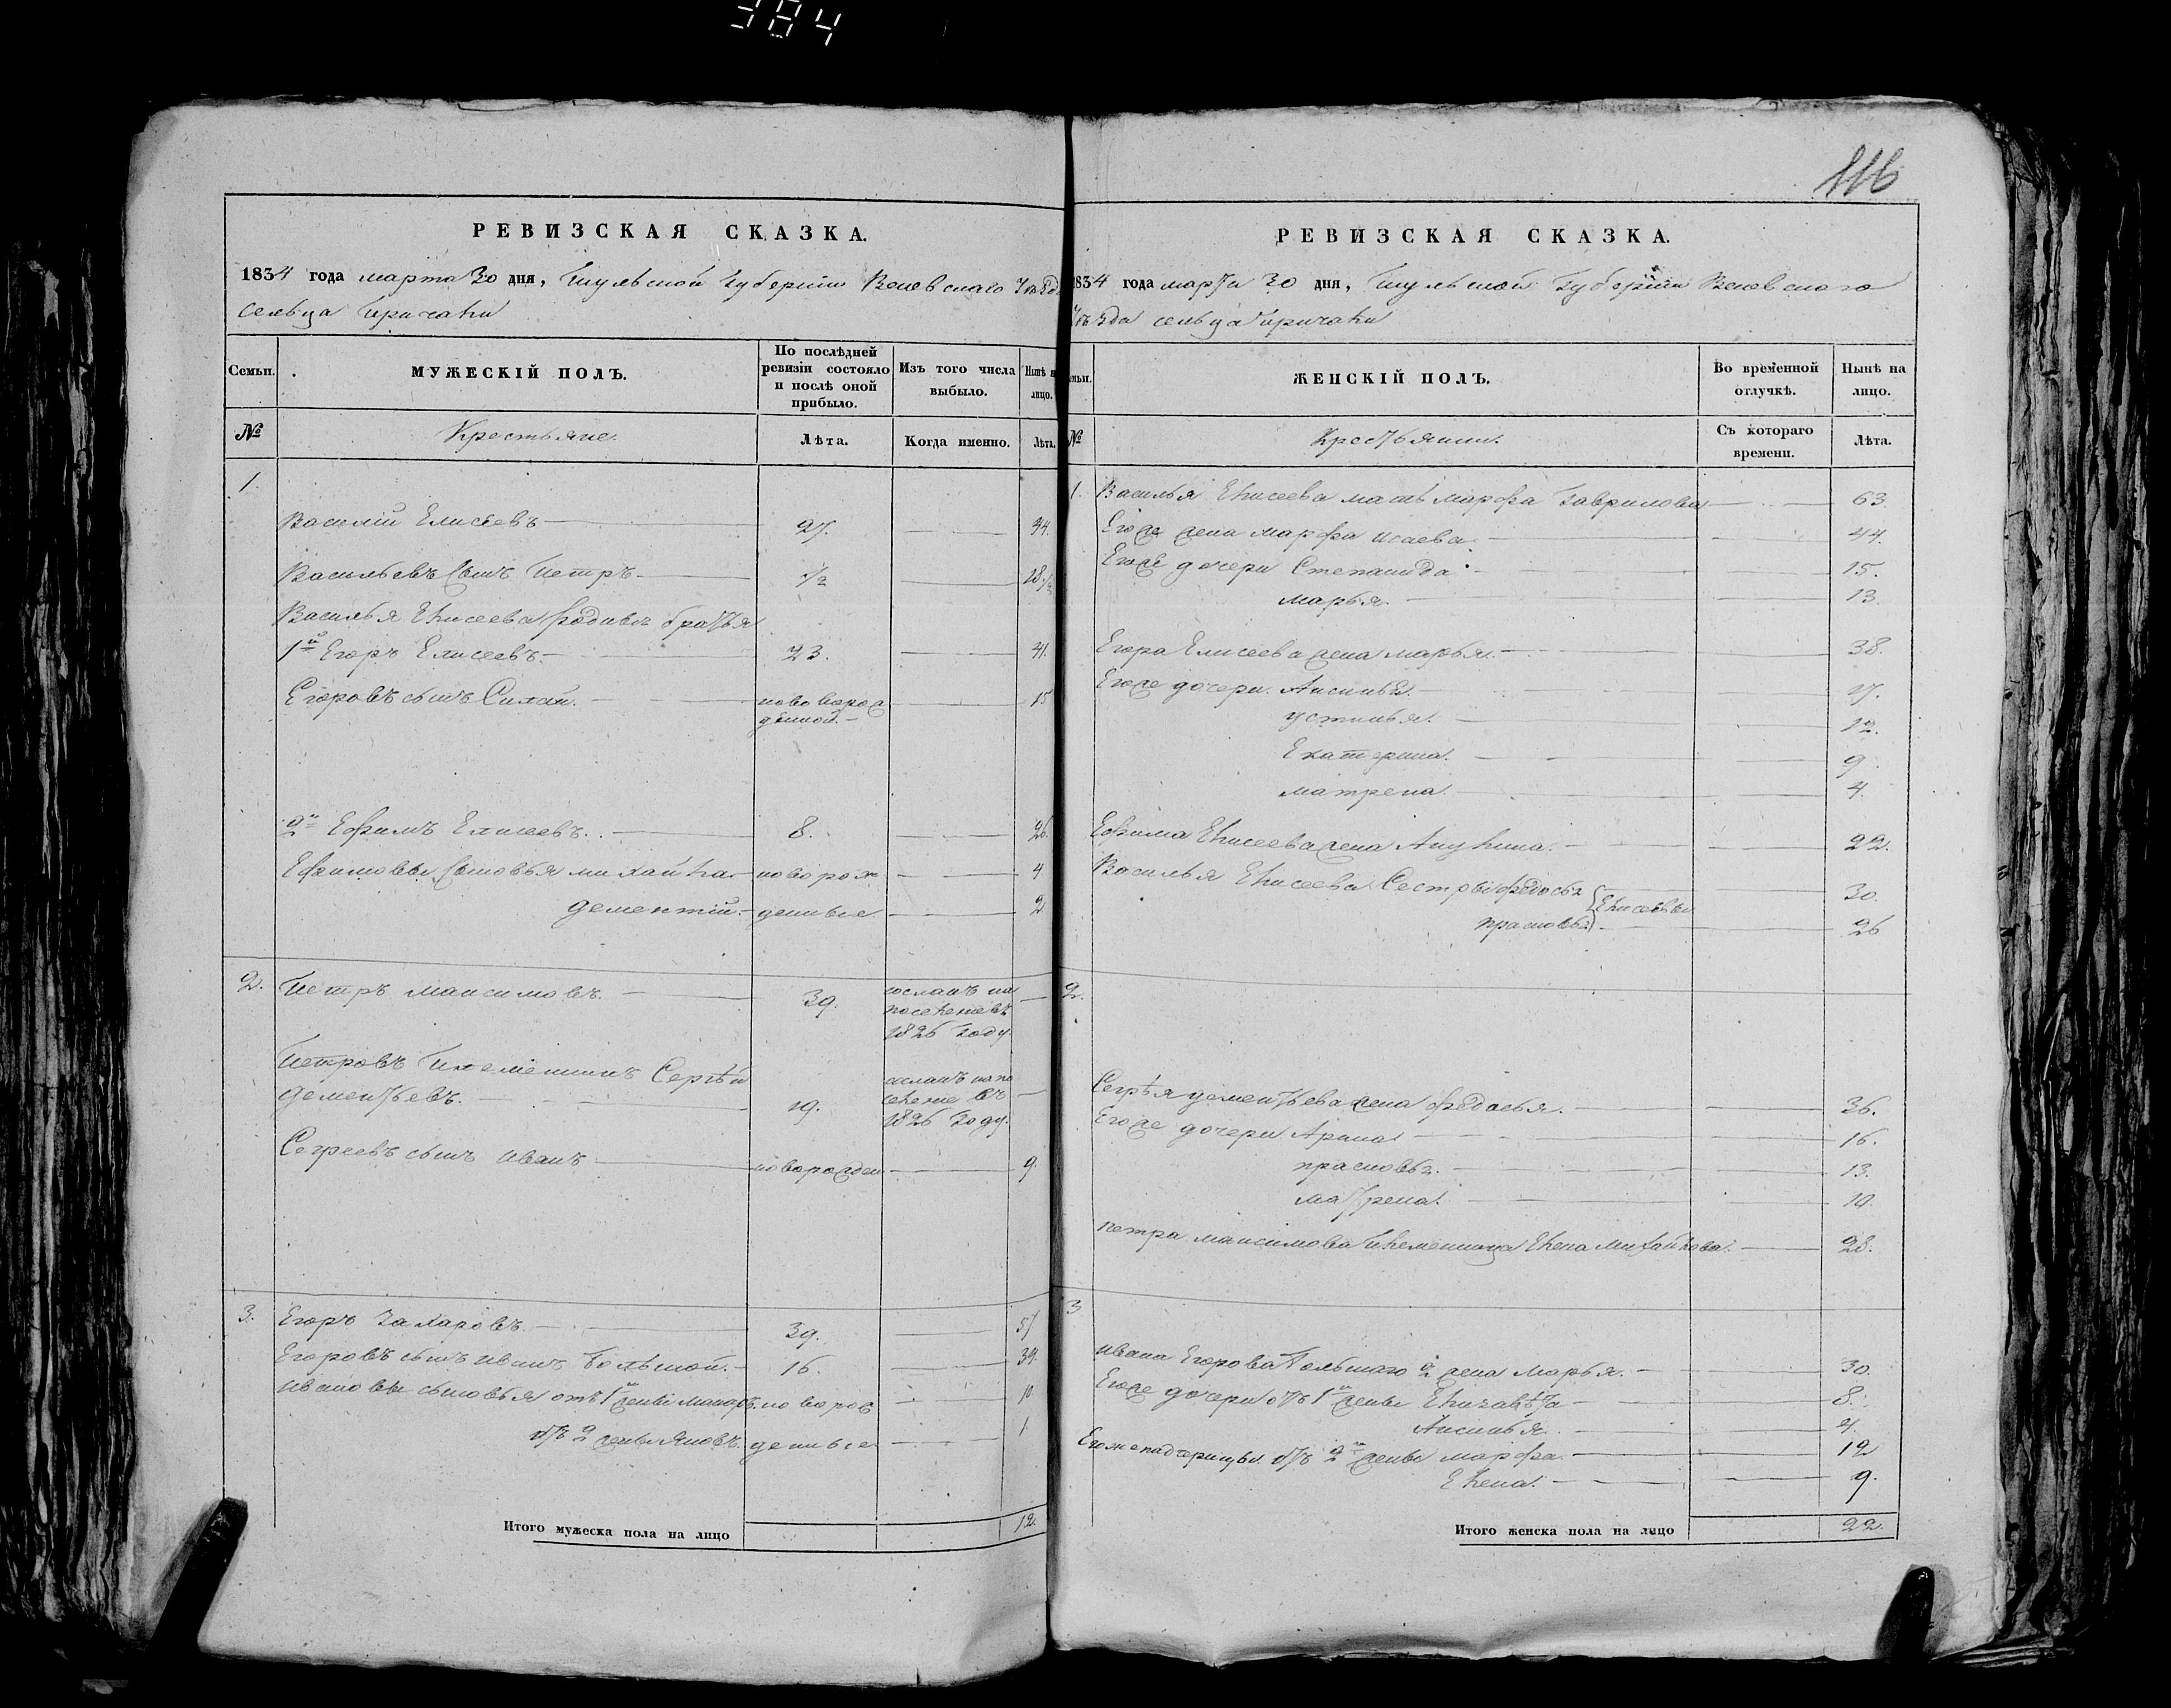 384
116
РЕВИЗСКАЯ СКАЗКА.
1834 года марта 30 дня, Тульской губернии Веневскаго Уѣзд
сельца Причали
Семьи.
МУЖЕСКІЙ ПОЛЪ.
По послѣдней ревизіи состояло и послѣ оной прибыло.
Изъ того числа выбыло.
Нынѣ н лицо.
№
Крестьяне.
Лѣта.
Когда именно.
Лѣта.
1
Василій Елисѣевъ 27. 44.
Васильевъ сынъ Петръ ½ 18½
Василья Елисеева родные братья
1й Егоръ Елисеевъ. 23. 41.
Егоровъ сынъ Силай. новорож 15
денной.
2й Ефимъ Елисеевъ. 8. 26.
Ефимовы сыновья михайла новорож 4
дементій. денные 2
2. Петръ максимовъ. 39. сосланъ на
поселеневъ
1826 году.
Петровъ племенникъ Сергѣй сосланъ на по
дементьевъ. 19. селение въ
1826 году.
Сергеевъ сынъ иванъ новорожден 9.
3. Егоръ Захаровъ. 39. 57
Егоровъ сынъ иванъ большой. 16. 34.
ивановы сыновья отъ 1й жены новорож 10
отъ 2 жены денные 1.
Итого мужеска пола на лицо 12.
РЕВИЗСКАЯ СКАЗКА.
1834 года марта 30 дня, Тульской Губерніи Веневскаго
Уѣзда сельца Причали
ЖЕНСКІЙ ПОЛЪ.
Во временной отлучкѣ.
Нынѣ на лицо.
№
Крестьянки.
Съ котораго времени.
Лѣта.
1. Василья Елисеева мать марфа Гаврилова 63
Егоже жена марфа исаева. 44.
Егоже дочери Степанида 15.
марья. 13.
Егора Елисеева жена марья. 38.
Егоже дочери. Аксинья. 17.
устинья. 12.
Екатерина. 9.
матрена. 4.
Ефима Елисеева жена Акулина. 22.
Василья Елисеева Сестры федосья 30.
Елисеевы
прасковья 26
2.
Сергѣя дементьева жена федосья. 36.
Егоже дочери Арина 16.
прасковья. 13.
матрена. 10.
петра максимова племенница Елена михайлова. 28.
3
ивана Егорова большаго 2я жена марья. 30.
Егоже дочери отъ 1й жены Елизавѣта 8.
Аксинья. 4.
Егоже падчерицы. отъ 2й жены марфа. 12
Елена. 9.
Итого женска пола на лицо 22.